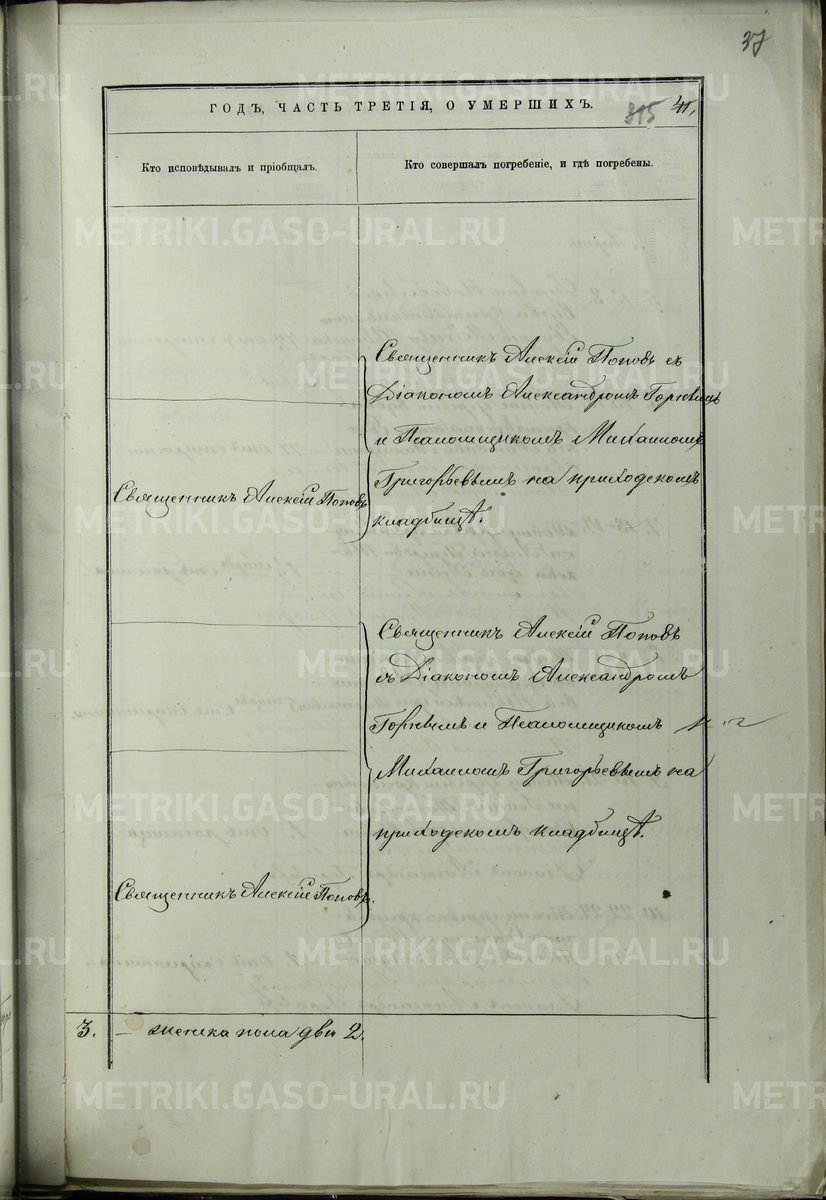 37
ГОДЪ, ЧАСТЬ ТРЕТІЯ, О УМЕРШИХЪ.
315 41,
Кто исповѣдывалъ и пріобщалъ.
Кто совершалъ погребеніе, и гдѣ погребены.
Священникъ Алексій Поповъ съ
Діакономъ Александромъ
и Псаломщикомъ Михаиломъ
Григорьевымъ на приходскомъ
кладбищѣ.
Священникъ Алексій Поповъ
Священникъ Алексій Поповъ
съ Діакономъ Александромъ
и Псаломщикомъ
Михаиломъ Григорьевымъ на
приходскомъ кладбищѣ.
Священникъ Алексій Поповъ.
3. — женска пола два 2.
METRIKI.GASO-URAL.RU